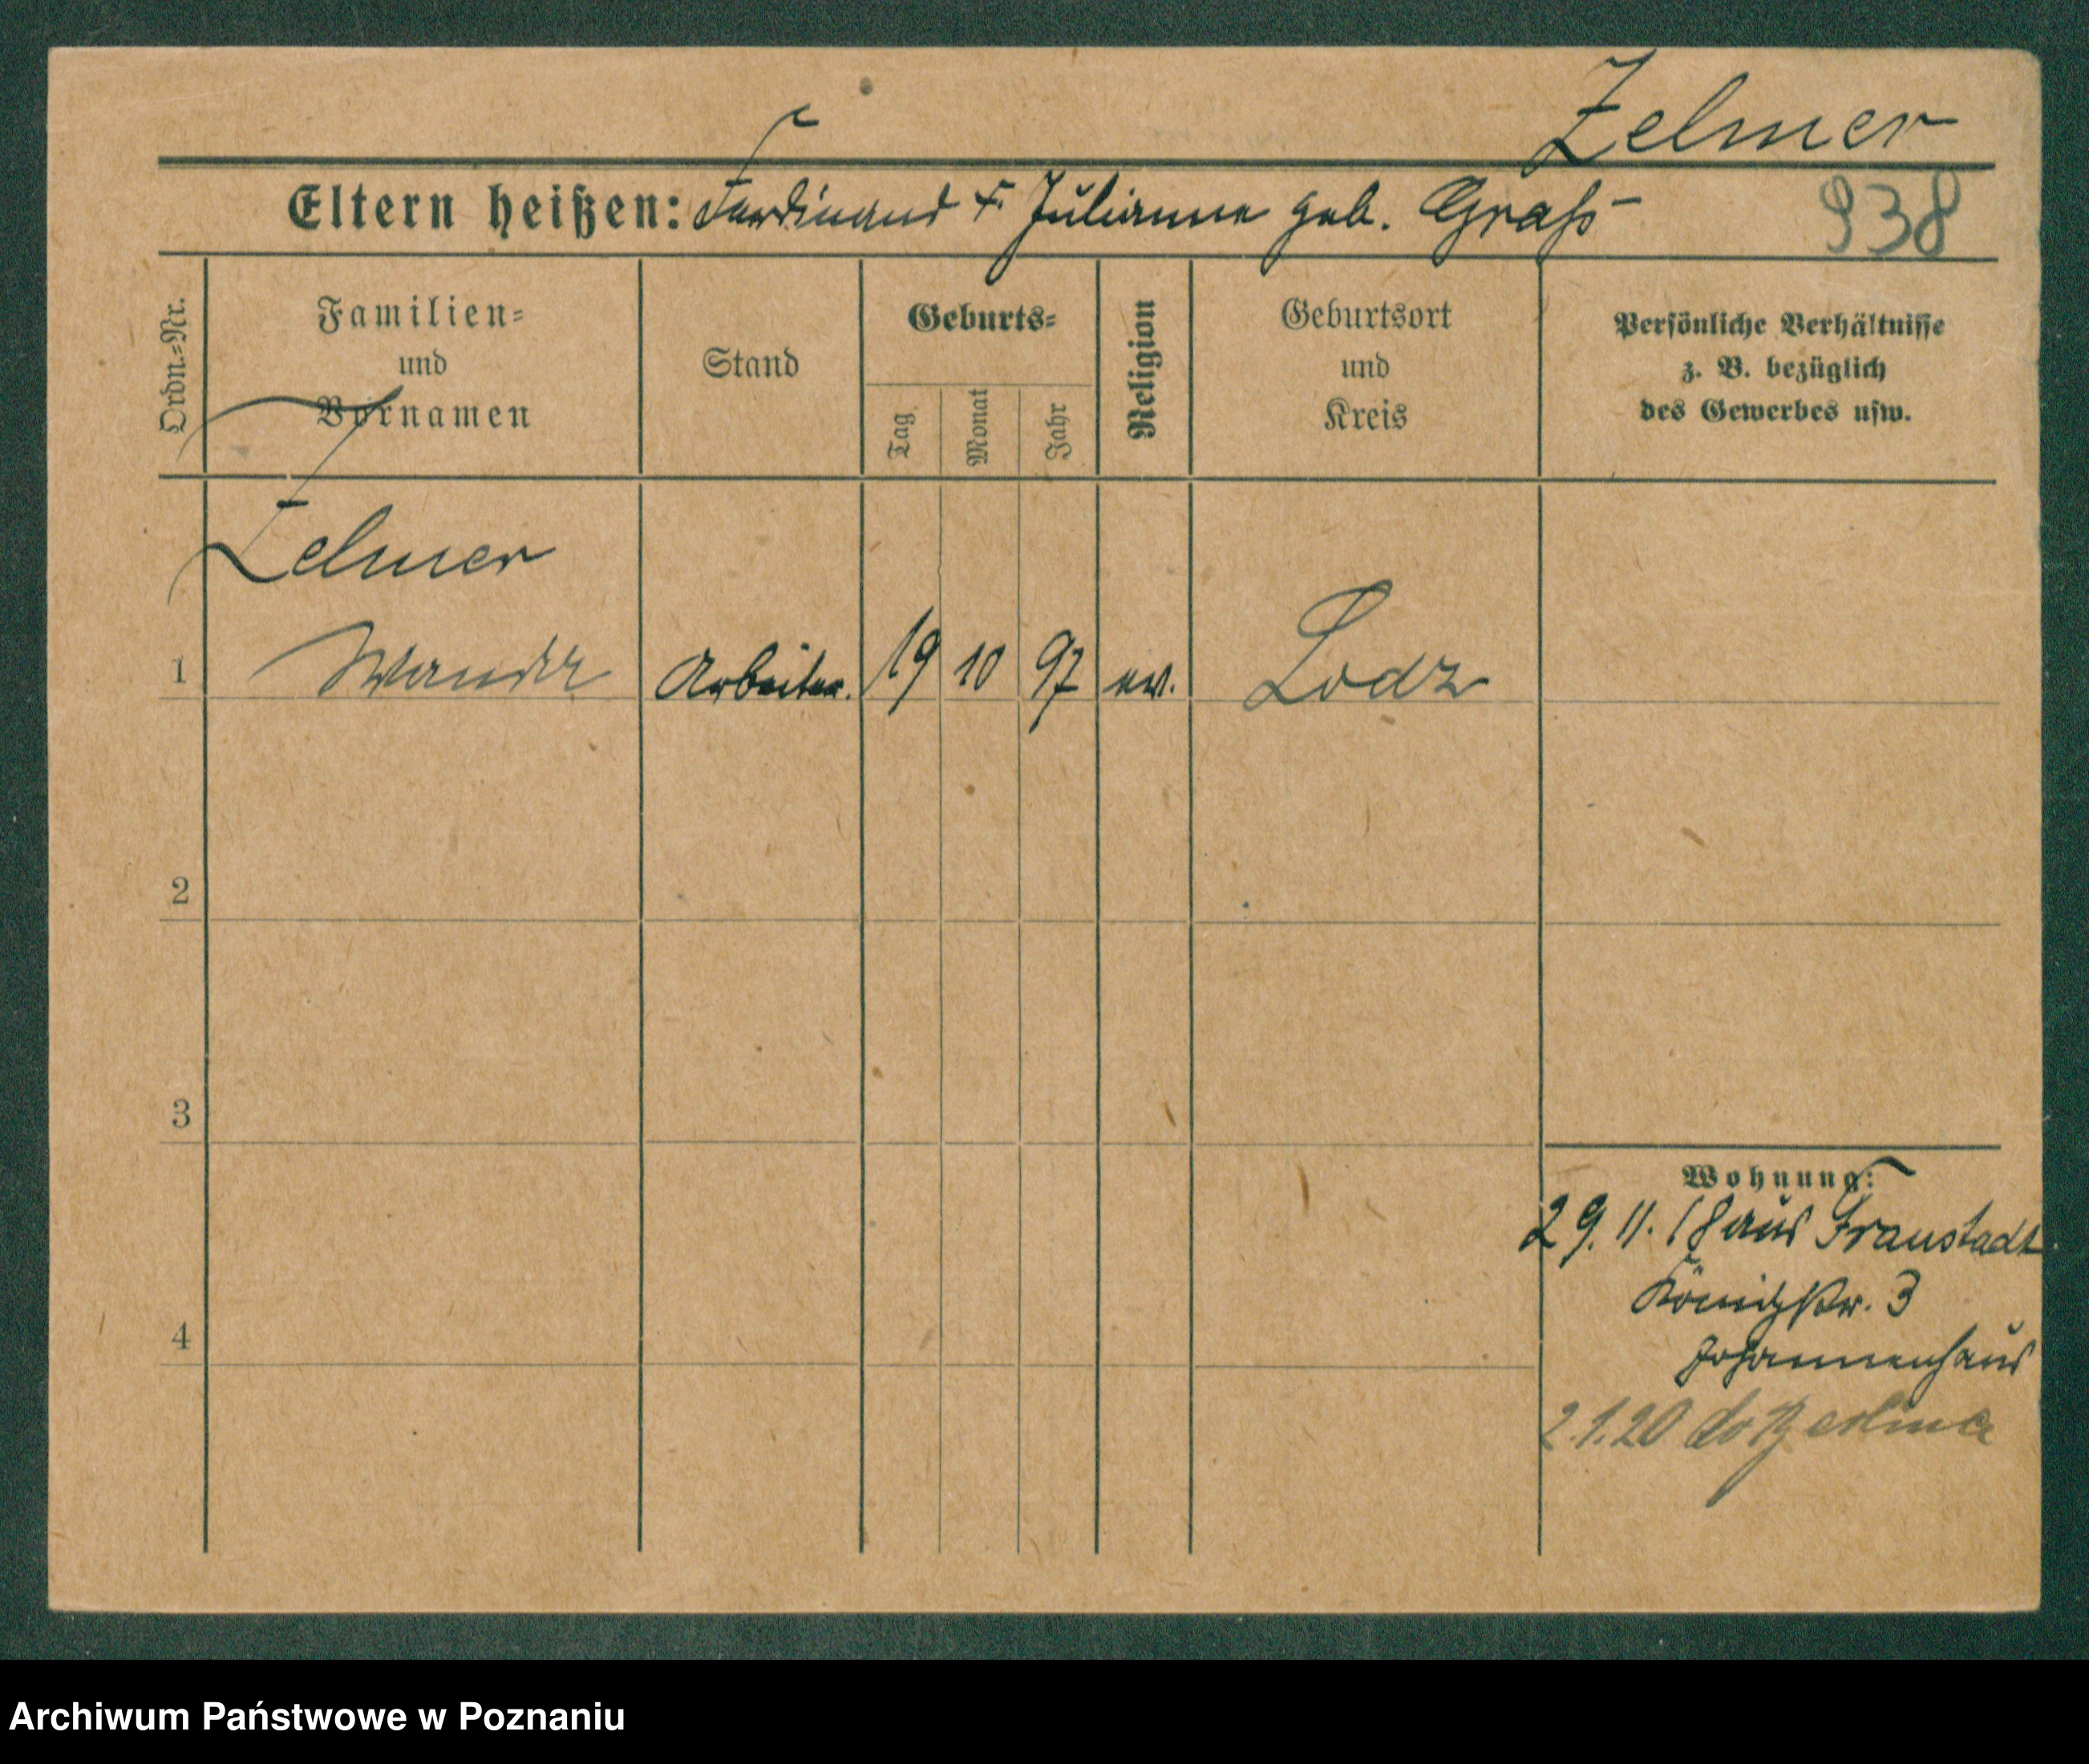 Zelmer
Eltern heißen: Ferdinand & Julianne geb. Graß
938
Ordn.-Nr.
Familien-
und
Vornamen
Stand
Geburts-
Tag
Monat
Jahr
Religion
Geburtsort
und
Kreis
Persönliche Verhältnisse
z. B. bezüglich
des Gewerbes usw.
Zelmer
1 Wanda Arbeiter. 19 10 97 ev. Lodz
2
3
4
Wohnung:
29. 11. 18 aus Fraustadt
Königstr. 3
Johannenhaus
2.1.20 do Berlina
Archiwum Państwowe w Poznaniu